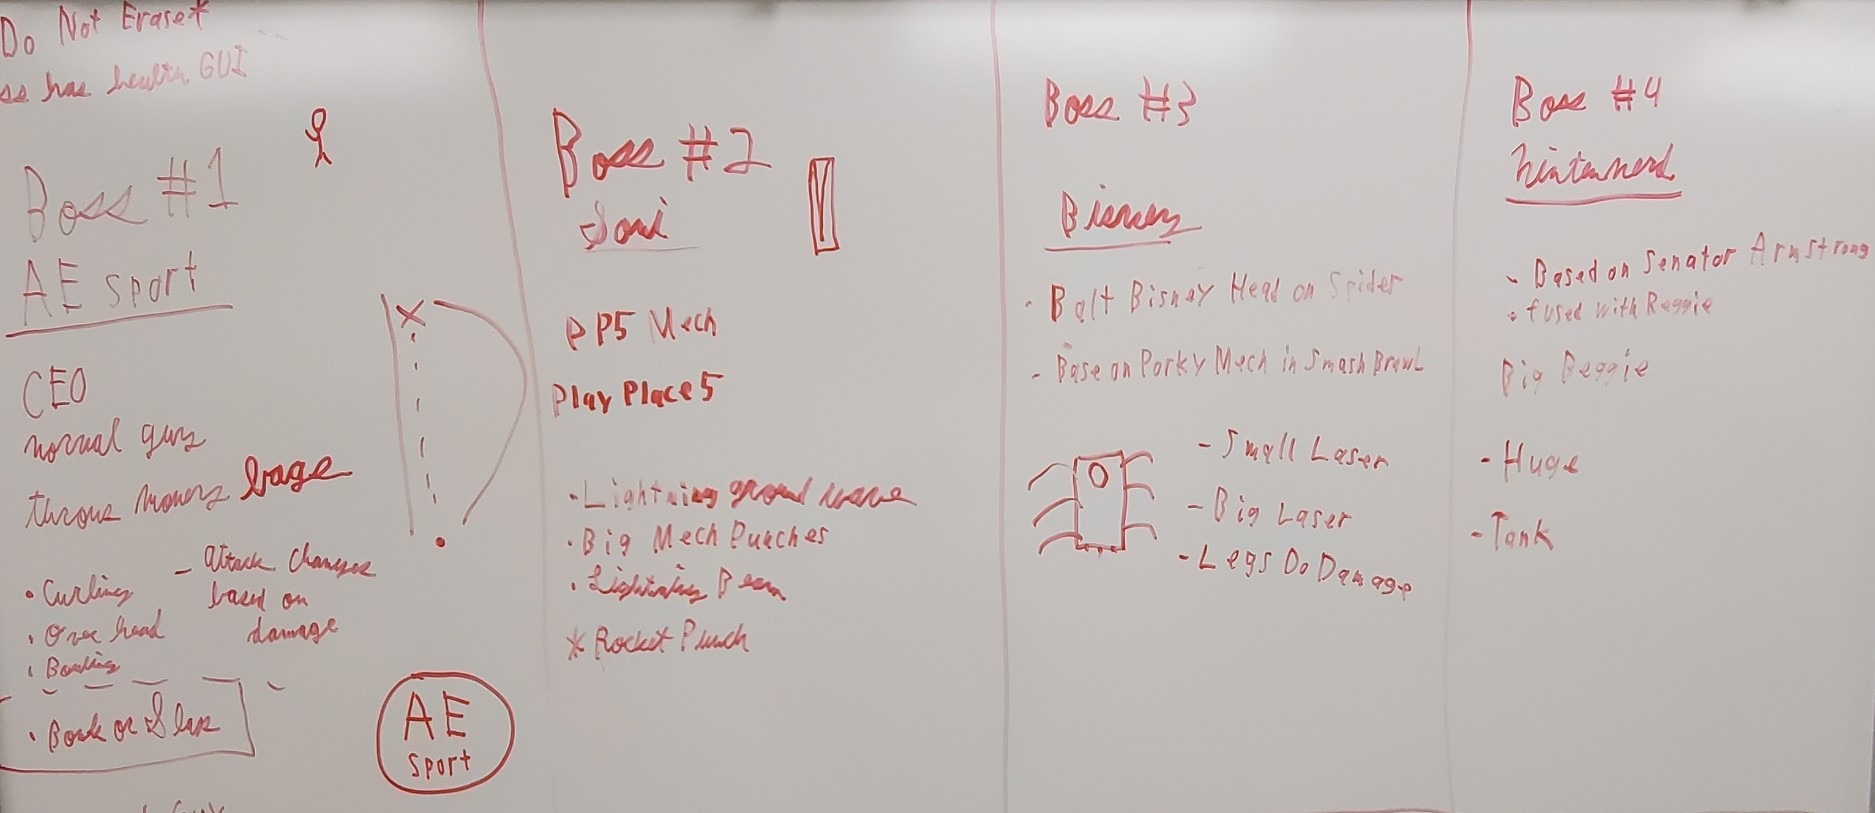 Do Not Erase*
ss has health GUI
Boss #1
AE sport
CEO
normal guy
throws money bags
- Attack Changes
based on
damage
• Curling
• Over head
• Bowling
• Book or Slap
AE
sport
Boss #2
Soni
PP5 Mech
Play Place 5
- Lightning ground wave
• Big Mech Punches
• Lightning Beam
* Rocket Punch
Boss #3
Bisney
• Balt Bisney Head on Spider
- Base on Porky Mech in Smash Brawl
- Small Laser
- Big Laser
- Legs Do Damage
Boss #4
Nintennerd
- Based on Senator Armstrong
• fused with Reggie
Big Beggie
- Huge
- Tank